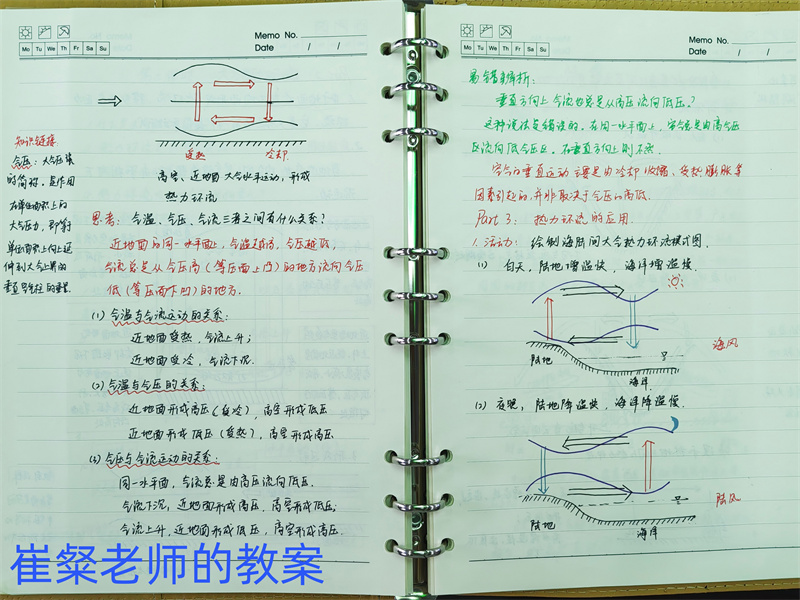 Memo No.
Date / /
Mo Tu We Th Fr Sa Su
受热 冷却
高空、近地面大气水平运动,形成
热力环流
知识链接
气压:大气压强
的简称,是作用
在单位面积上的
大气压力,即等于
单位面积上向上延
伸到大气上界的
垂直空气柱的重量.
思考:气温、气压、气流三者之间有什么关系?
近地面的同一水平面上,气温越高,气压越低,
气流总是从气压高(等压面上凸)的地方流向气压
低(等压面下凹)的地方.
(1)气温与气流运动的关系:
近地面受热,气流上升;
近地面受冷,气流下沉.
(2)气温与气压的关系:
近地面形成高压(受冷),高空形成低压
近地面形成低压(受热),高空形成高压
(3)气压与气流运动的关系:
同一水平面,气流总是由高压流向低压.
气流下沉,近地面形成高压,高空形成低压;
气流上升,近地面形成低压,高空形成高压.
崔粲老师的教案
Memo No.
Date / /
Mo Tu We Th Fr Sa Su
易错辨析:
垂直方向上气流也总是从高压流向低压?
这种说法是错误的。在同一水平面上,空气是由高气压
区流向低气压区,在垂直方向上则不然.
空气的垂直运动主要是由冷却收缩、受热膨胀等
因素引起的,并非取决于气压的高低.
Part 3:热力环流的应用.
1.活动:绘制海陆间大气热力环流模式图.
(1)白天,陆地增温快,海洋增温慢.
海风
陆地
海洋
(2)夜晚,陆地降温快,海洋降温慢.
陆风
陆地
海洋